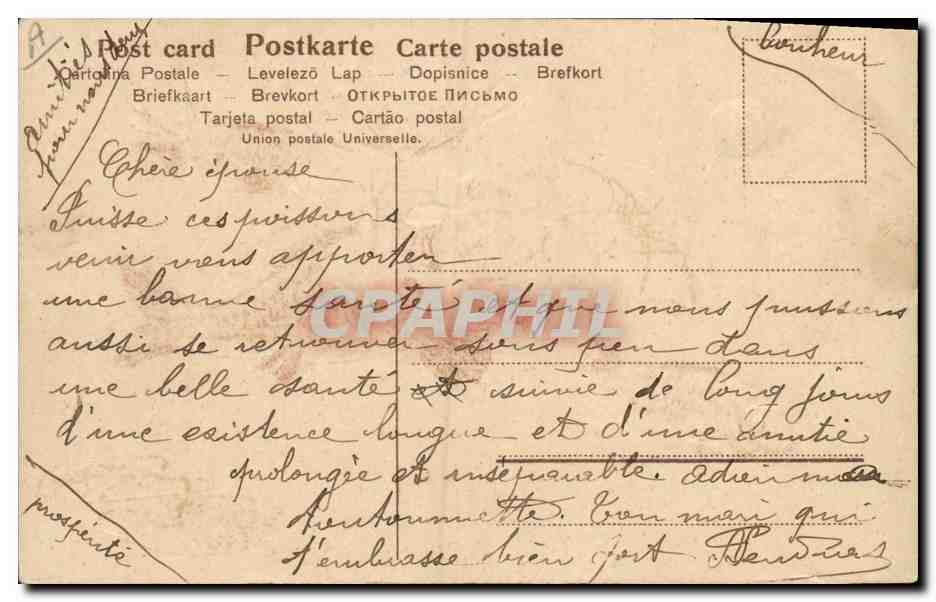 A
amitiés
pour nous deux
Post card Postkarte Carte postale
Cartolina Postale – Levelező Lap – Dopisnice – Brefkort
Briefkaart – Brevkort – ОТКРЫТОЕ ПИСЬМО
Tarjeta postal – Cartão postal
Union postale Universelle.
bonheur
Chère épouse
Puisse ces poissons
venir vous apporter
une bonne santé et que nous puissions
aussi se retrouver sous peu dans
une belle santé et suivie de long jours
d'une existence longue et d'une amitié
prolongée et inséparable. adieu ma
toutounette. Ton mari qui
t'embrasse bien fort
prospérité
CPAPHIL